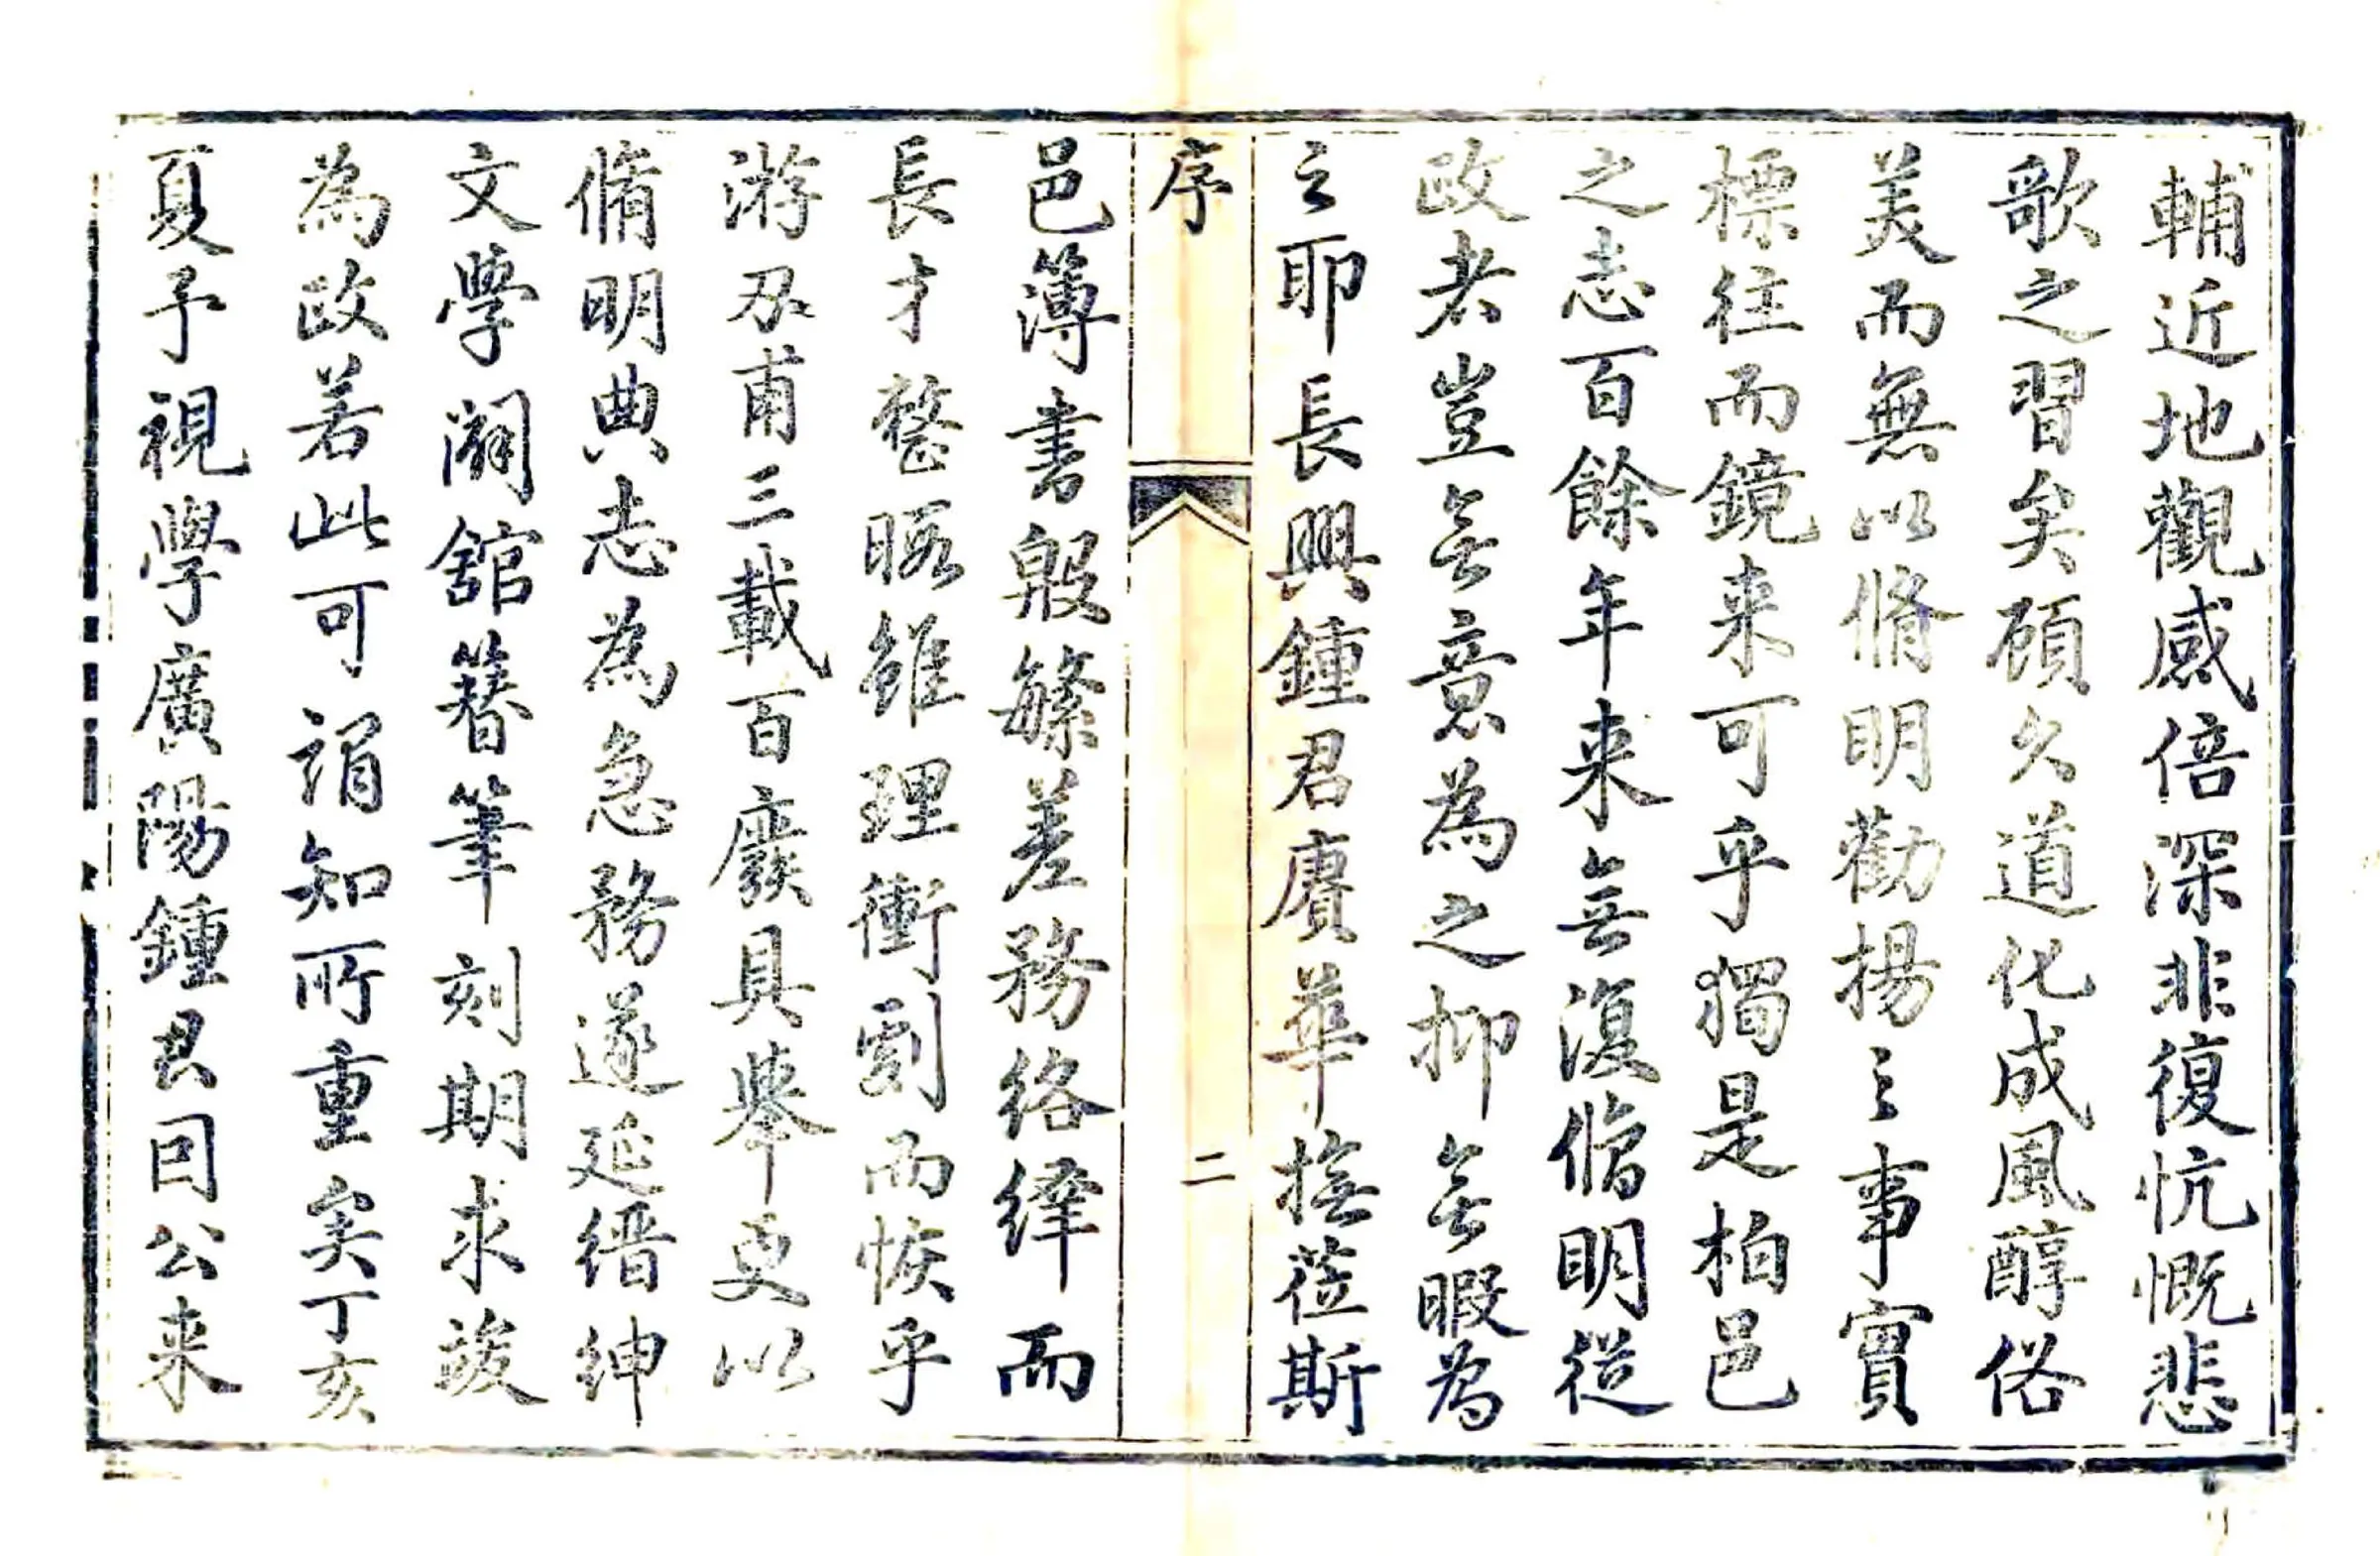 輔近地觀感倍深非復忼慨悲
歌之習矣顧久道化成風醇俗
美而無以脩明勸揚之事實
標往而鏡来可乎獨是柏邑
之志百餘年来無復脩明從
政者豈無意為之抑無暇為
之耶長興鍾君賡華撫蒞斯
序
二
邑簿書殷繁差務絡繹而
長才整暇雖理衝劇而恢乎
游刃甫三載百廢具舉更以
脩明典志為急務遂延縉紳
文學闢舘簪筆刻期求竣
為政若此可謂知所重矣丁亥
夏予視學廣陽鍾君因公来